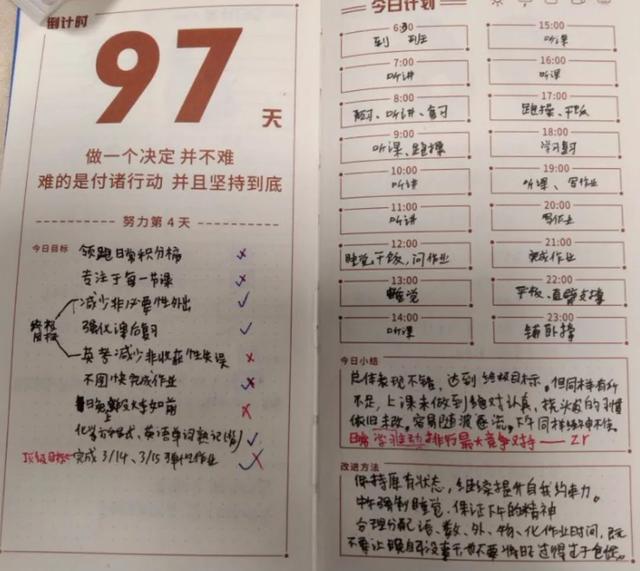 倒计时
97
天
做一个决定 并不难
难的是付诸行动 并且坚持到底
努力第 4 天
今日目标
领跑日常积分榜 ×
专注于每一节课 ×
减少非必要性外出 ✓
终极目标
强化课后复习 ✓
英考减少非收获性失误 ×
不图快完成作业 ×
如前 ×
化学方程式、英语单词熟记(当) ✓
顶级目标 完成 3/14、3/15 弹性作业
今日计划
6:30
到班
7:00
听讲
8:00
预习、听讲、复习
9:00
听课、跑操
10:00
听讲
11:00
听讲
12:00
睡觉、干饭、问作业
13:00
睡觉
14:00
听课
15:00
听课
16:00
听课
17:00
跑操、干饭
18:00
学习复习
19:00
听课、写作业
20:00
写作业
21:00
完成作业
22:00
平板、直臂支撑
23:00
俯卧撑
今日小结
总体表现不错，达到终极目标。但同样有所
不足，上课未做到绝对认真，挠头发的习惯
依旧未改，容易随波逐流。下午同样
日常学习主动排行最大竞争对手 —— Zr
改进方法
保持原有状态，继续提升自我约束力。
中午强制睡觉，保证下午的精神
合理分配语、数、外、物、化作业时间，既
不要让